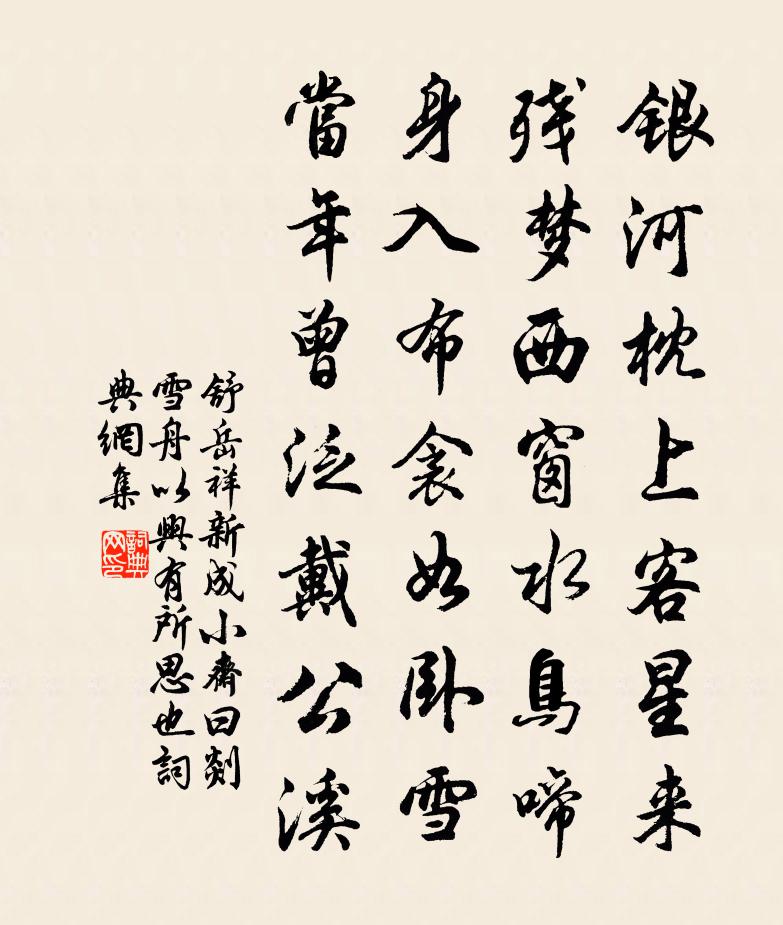 銀河枕上客星来
残梦西窗水鳥啼
身入布衾如卧雪
當年曾泛戴公溪
舒岳祥新成小齋曰剡
雪舟以興有所思也詞
典網集
詞典网印